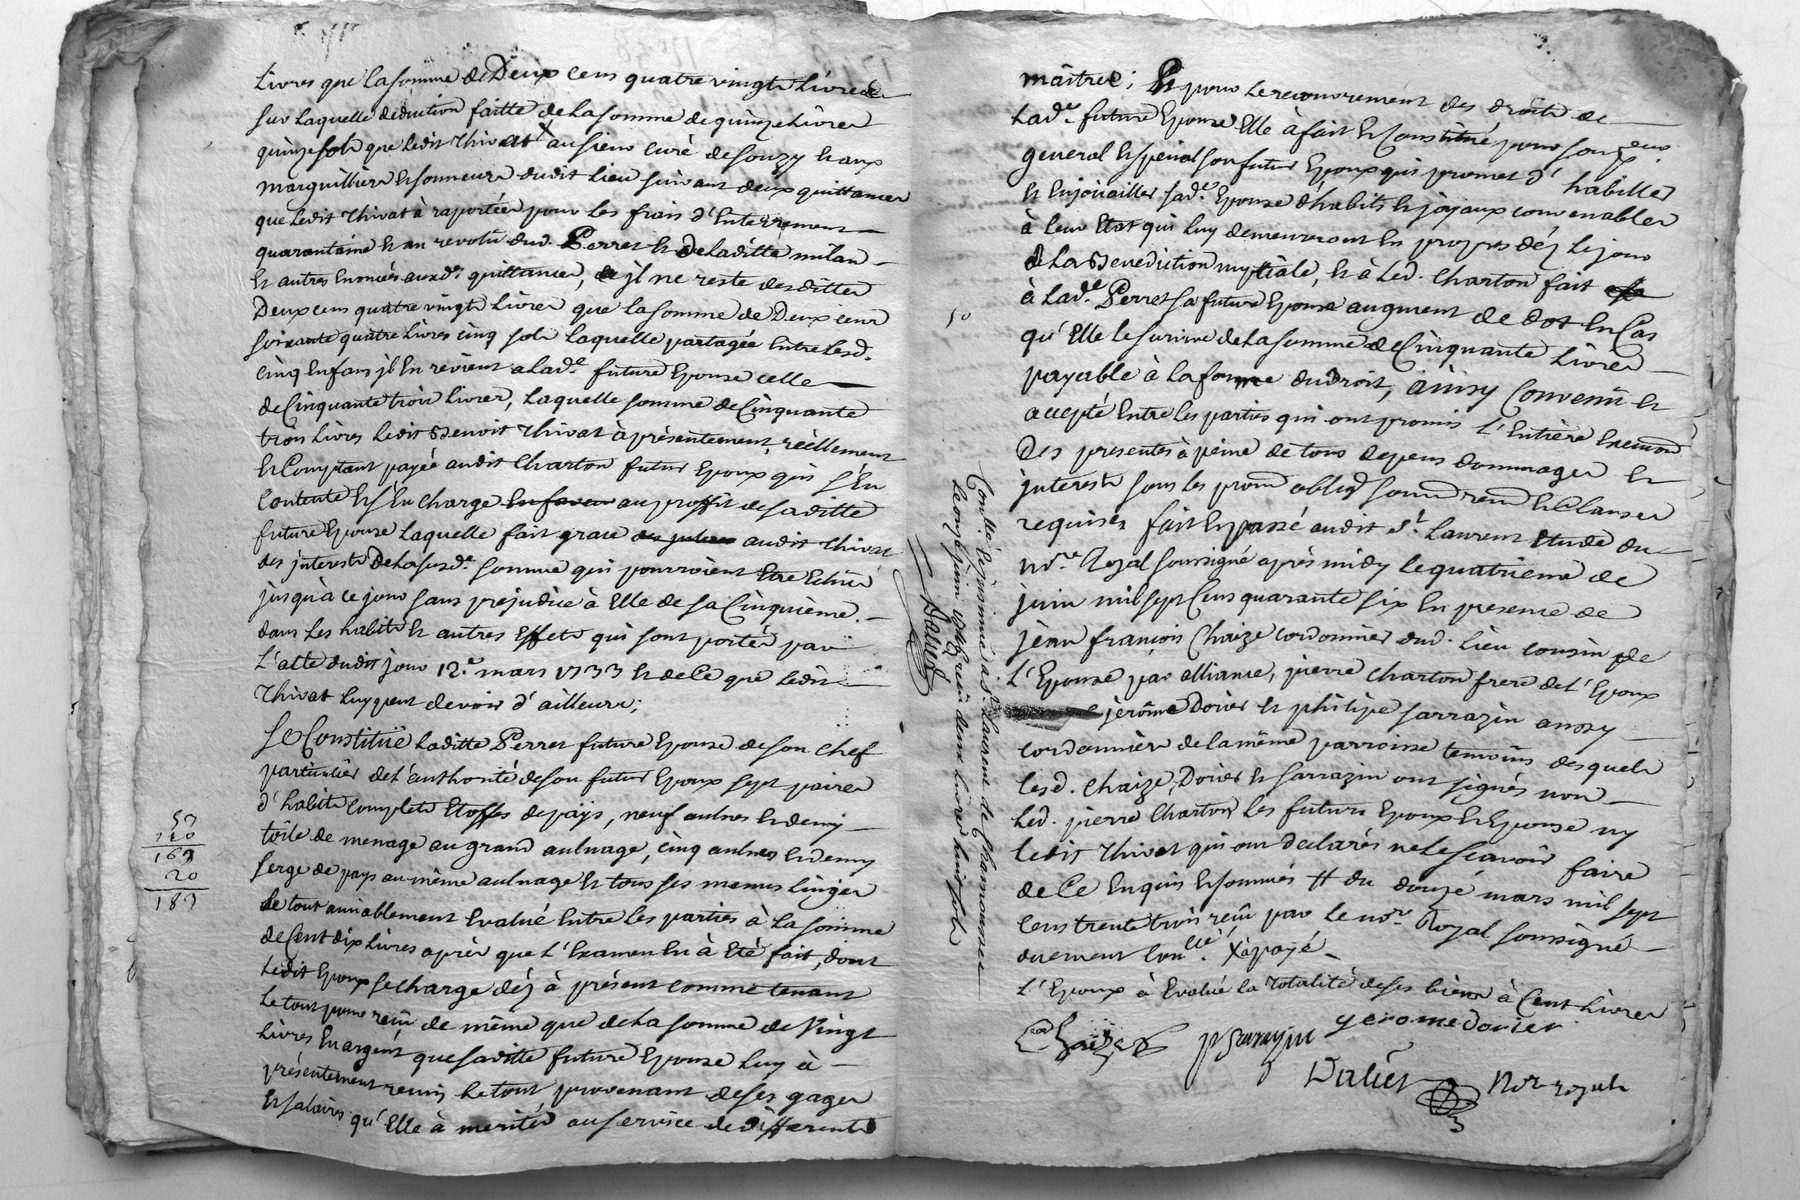 Livres que la somme de Deux cens quatre vingts Livres
sur Laquelle deduction faitte de la somme de quinze Livres
quinze sols que ledit Thivat X au sieur curé de Souzy et aux
marguilliers et sonneurs dudit Lieu suivant deux quittances
que ledit Thivat à raportées pour les frais d'Enterrement
quarantaine et au revolu dud. Perret et de laditte milan
et autres Enoncés auxd. quittances, il ne reste desdittes
Deux cens quatre vingts Livres que la somme de Deux cens
soixante quatre Livres cinq sols Laquelle partagée Entre lesd.
cinq Enfans il En revient a lad.e future Epouse celle
de Cinquante trois Livres, Laquelle somme de Cinquante
trois Livres ledit Benoit Thivat à présentement, réellement
et Comptant payée audit Charton futur Epoux qui s'En
Contente et s'En charge au proffit de saditte
future Epouse Laquelle fait grace audit Thivat
des interests de la susd.e somme qui pourroient Etre Echus
jusqu'à ce jour sans prejudice à Elle de sa Cinquième
dans les habits et autres Effets qui sont portés par
L'acte dudit jour 12.e mars 1733 et de Ce que ledit
Thivat luy peut devoir d'ailleurs;
Se Constituë laditte Perret future Epouse de son chef
particulier de l'authorité de son futur Epoux sept paires
d'habits complets Etoffes de païs, neuf aulnes et demy
toile de menage au grand aulnage, cinq aulnes et demy
serge de pays au même aulnage et tous ses menus linges
Le tout amiablement Evalué Entre les parties à La somme
de Cent dix livres après que L'Examen En à Eté fait, dont
ledit Epoux se charge déz à présent comme tenant
Le tout pour reçû de même que de la somme de Vingt
Livres En argent que saditte future Epouse Luy à
présentement remis Le tout provenant de ses gages
et salaires qu'Elle à merités au service de differents
53
110
163
20
183
maîtres; Et pour Le recouvrement des droits de
Lad.e future Epouse Elle à fait et Constitué pour son
general et special son futur Epoux qui promet d'habiller
et Enjoüailler sad.e Epouse d'habits et joyaux convenables
à leur Etat qui luy demeureront En propres déz le jour
de La Benediction nuptiale, et à Led. Charton fait
à Lad.e Perret sa future Epouse augment de dot En Cas
qu'Elle le survive de la somme de Cinquante Livres
payable à la forme du droit, ainsy Convenu et
accepté Entre les parties qui ont promis L'Entière Execution
Des presentes à peine de tous depens dommages et
interests sous les prom. oblig. soum. renon. et Clauses
requises fait et passé audit S.t Laurent Etude du
no.re Royal soussigné après midy le quatrieme de
juin mil sept Cens quarante six En presence de
jean françois Chaize cordonnier dud. Lieu cousin de
L'Epouse par alliance, pierre Charton frere de L'Epoux
jerôme Dorier et philipe sarrazin aussy
cordonniers de la même parroisse temoins desquels
lesd. Chaize, Dorier et sarrazin ont signés non
Led. pierre Charton les futurs Epoux et Epouse ny
ledit Thivat qui ont declarés ne le scavoir faire
de Ce Enquis et sommés # du douze mars mil sept
Cens trente trois reçû par Le no.re Royal soussigné
duement Con.llé X à payé
L'Epoux à Evalué la totalité de ses biens à Cent Livres
50
Con.llé et insinué à S.t Laurent de Chamousset
Le onze juin 1746 reçu deux Livres huit sols
Dalier
Chaize P Sarrazin yerome dorier
Dalier Not. royal